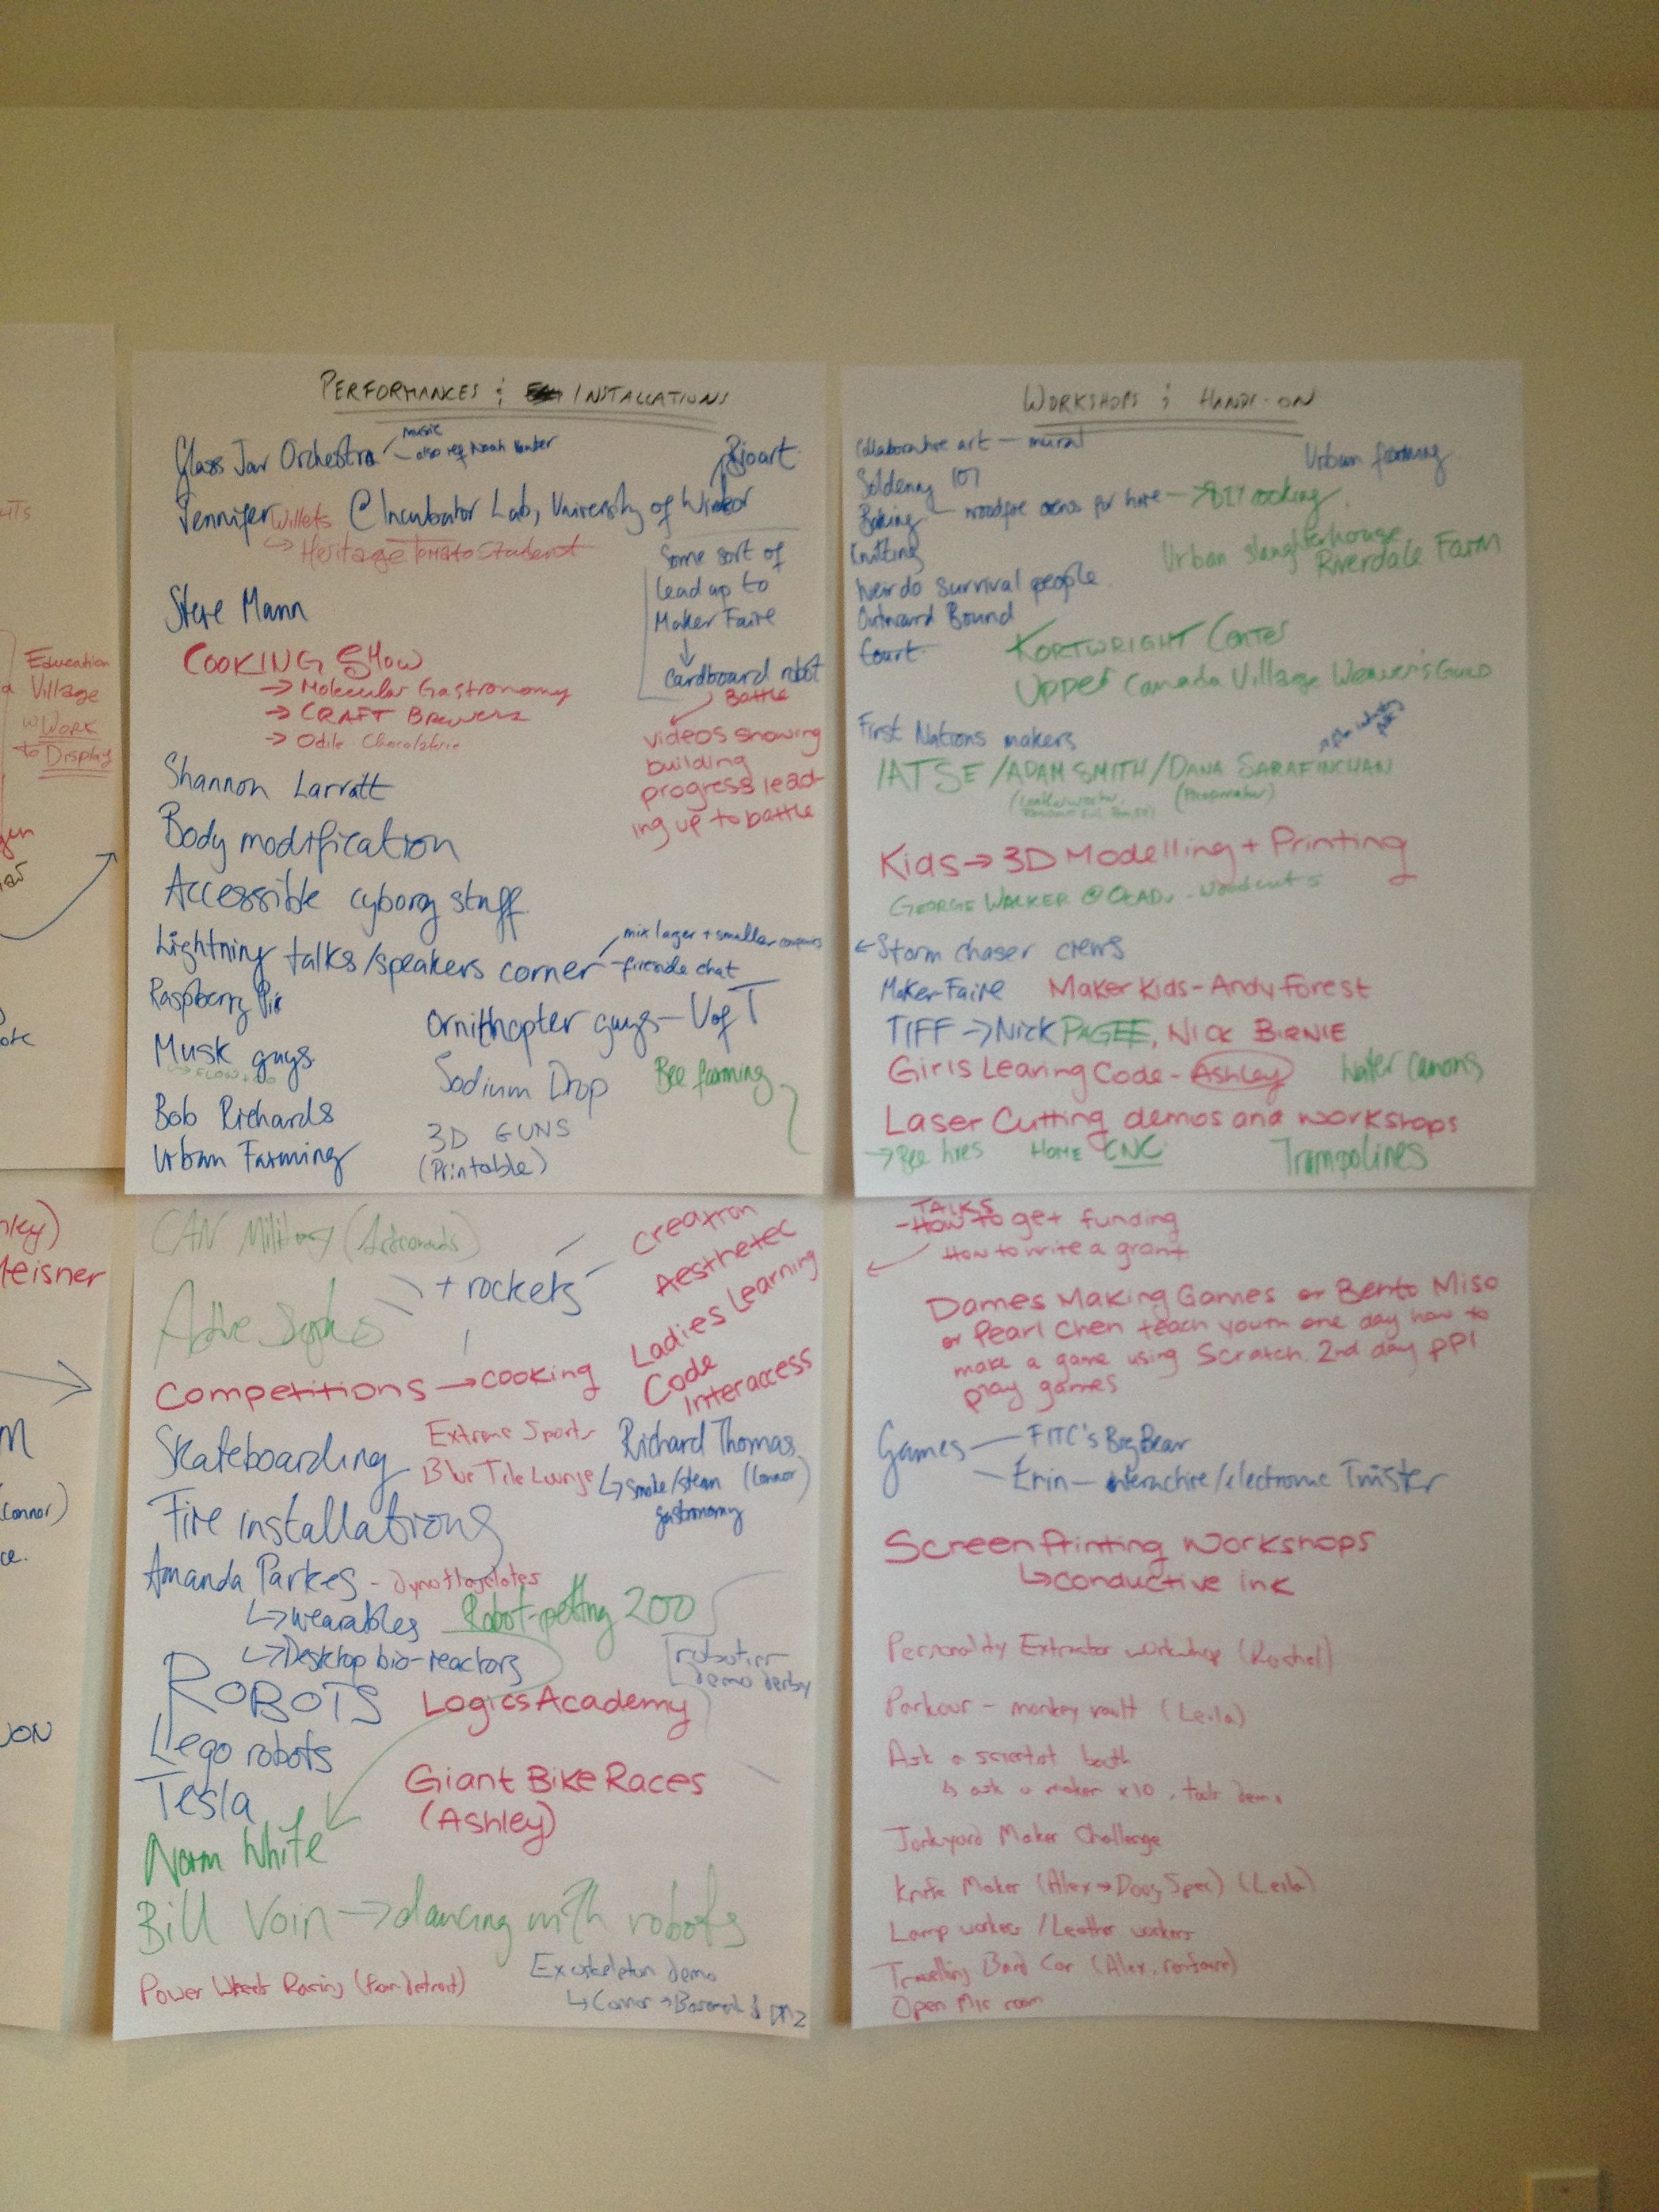 PERFORMANCES & INSTALLATIONS
Glass Jar Orchestra
music
also req Noah
Bioart
Jennifer Willets @ Incubator Lab, University of Windsor
↳ Heritage Tomato Student
Some sort of
lead up to
Maker Faire
↓
Cardboard robot
Battle
videos showing
building
progress lead-
ing up to battle
Steve Mann
COOKING SHOW
→ Molecular Gastronomy
→ CRAFT Brewers
→ Odile Chocolaterie
Shannon Larratt
Body modification
Accessible cyborg stuff
Lightning talks/speakers corner
mix lager + smaller companies
- fireside chat
Raspberry Pi
Ornithopter guys - U of T
Musk guys
Sodium Drop
Bee farming
Bob Richards
3D GUNS
(Printable)
Urban Farming
CAN Military (Astronauts)
+ rockets
Creatron
Aesthetec
Ladies Learning
Code
Interaccess
Competitions → cooking
Skateboarding
Extreme Sports
Blue Tile Lounge
Richard Thomas
↳ smoke/steam (Connor)
gastronomy
Fire installations
Amanda Parkes - dynoflagelates
↳ wearables
↳ Desktop bio-reactors
Robot-petting ZOO
robotics
demo derby
ROBOTS
Logics Academy
Lego robots
Tesla
Giant Bike Races
(Ashley)
Norm White
Bill Voin → dancing with robots
Power Wheels Racing (from detroit)
Exoskeleton demo
↳ Connor →
WORKSHOPS & HANDS-ON
Collaborative art - mural
Urban farming
Soldering 101
Baking - woodfire ovens for hire → DIY cooking
Knitting
Urban slaughterhouse
Riverdale Farm
weirdo survival people
Outward Bound
Court
KORTWRIGHT CENTER
UPPER Canada Village Weaver's GUILD
First Nations makers
IATSE / ADAM SMITH / DANA SARAFINCHAN
(Leatherworker
(Propmaker)
Kids → 3D Modelling + Printing
GEORGE WALKER @ OCADu - woodcuts
← Storm chaser crews
Maker Faire
Maker Kids - Andy Forest
TIFF → NICK PAGEE, NICK BIRNIE
Girls Learing Code - Ashley
Water Canons
Laser Cutting demos and workshops
→ Bee hives
HOME CNC
Trampolines
TALKS
- How to get funding
How to write a grant
Dames Making Games or Bento Miso
or Pearl Chen teach youth one day how to
make a game using Scratch. 2nd day ppl
play games
Games - FITC's Big Bear
- Erin - interactive/electronic Twister
Screen Printing Workshops
↳ conductive ink
Personality Extractor workshop (Rachel)
Parkour - monkey vault (Leila)
Ask a scientist booth
↳ ask a maker x10, tools demx
Junkyard Maker Challenge
Knife Maker (Alex → Doug Spec) (Leila)
Lamp workers / Leather workers
Travelling Band Car (Alex.
Open Mic room
Education
Village
w WORK
to Display
eisner